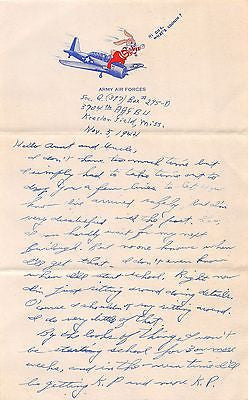 HI DOC,
WHAT'S COOKIN'?
ARMY AIR FORCES
Sec. Q, (397) Box # 295-D
3704th AAF BU
Keesler Field, Miss.
Nov. 5, 1944
Hello Aunt and Uncle,
I don't have too much time but
I simply had to take time out to
drop you a few lines to let you
know I've arrived safely but am
very dissatisfied with the post. Gee,
I can hardly wait for my next
furlough. But no one knows when
I'll get that. I don't even know
when I'll start school. Right now
I'm just sitting around doing details.
O'course I shouldn't say sitting around.
I do very little of that.
By the looks of things I won't
be starting school for 3 or more
weeks, and in the mean time I'll
be getting K.P. and more K.P.